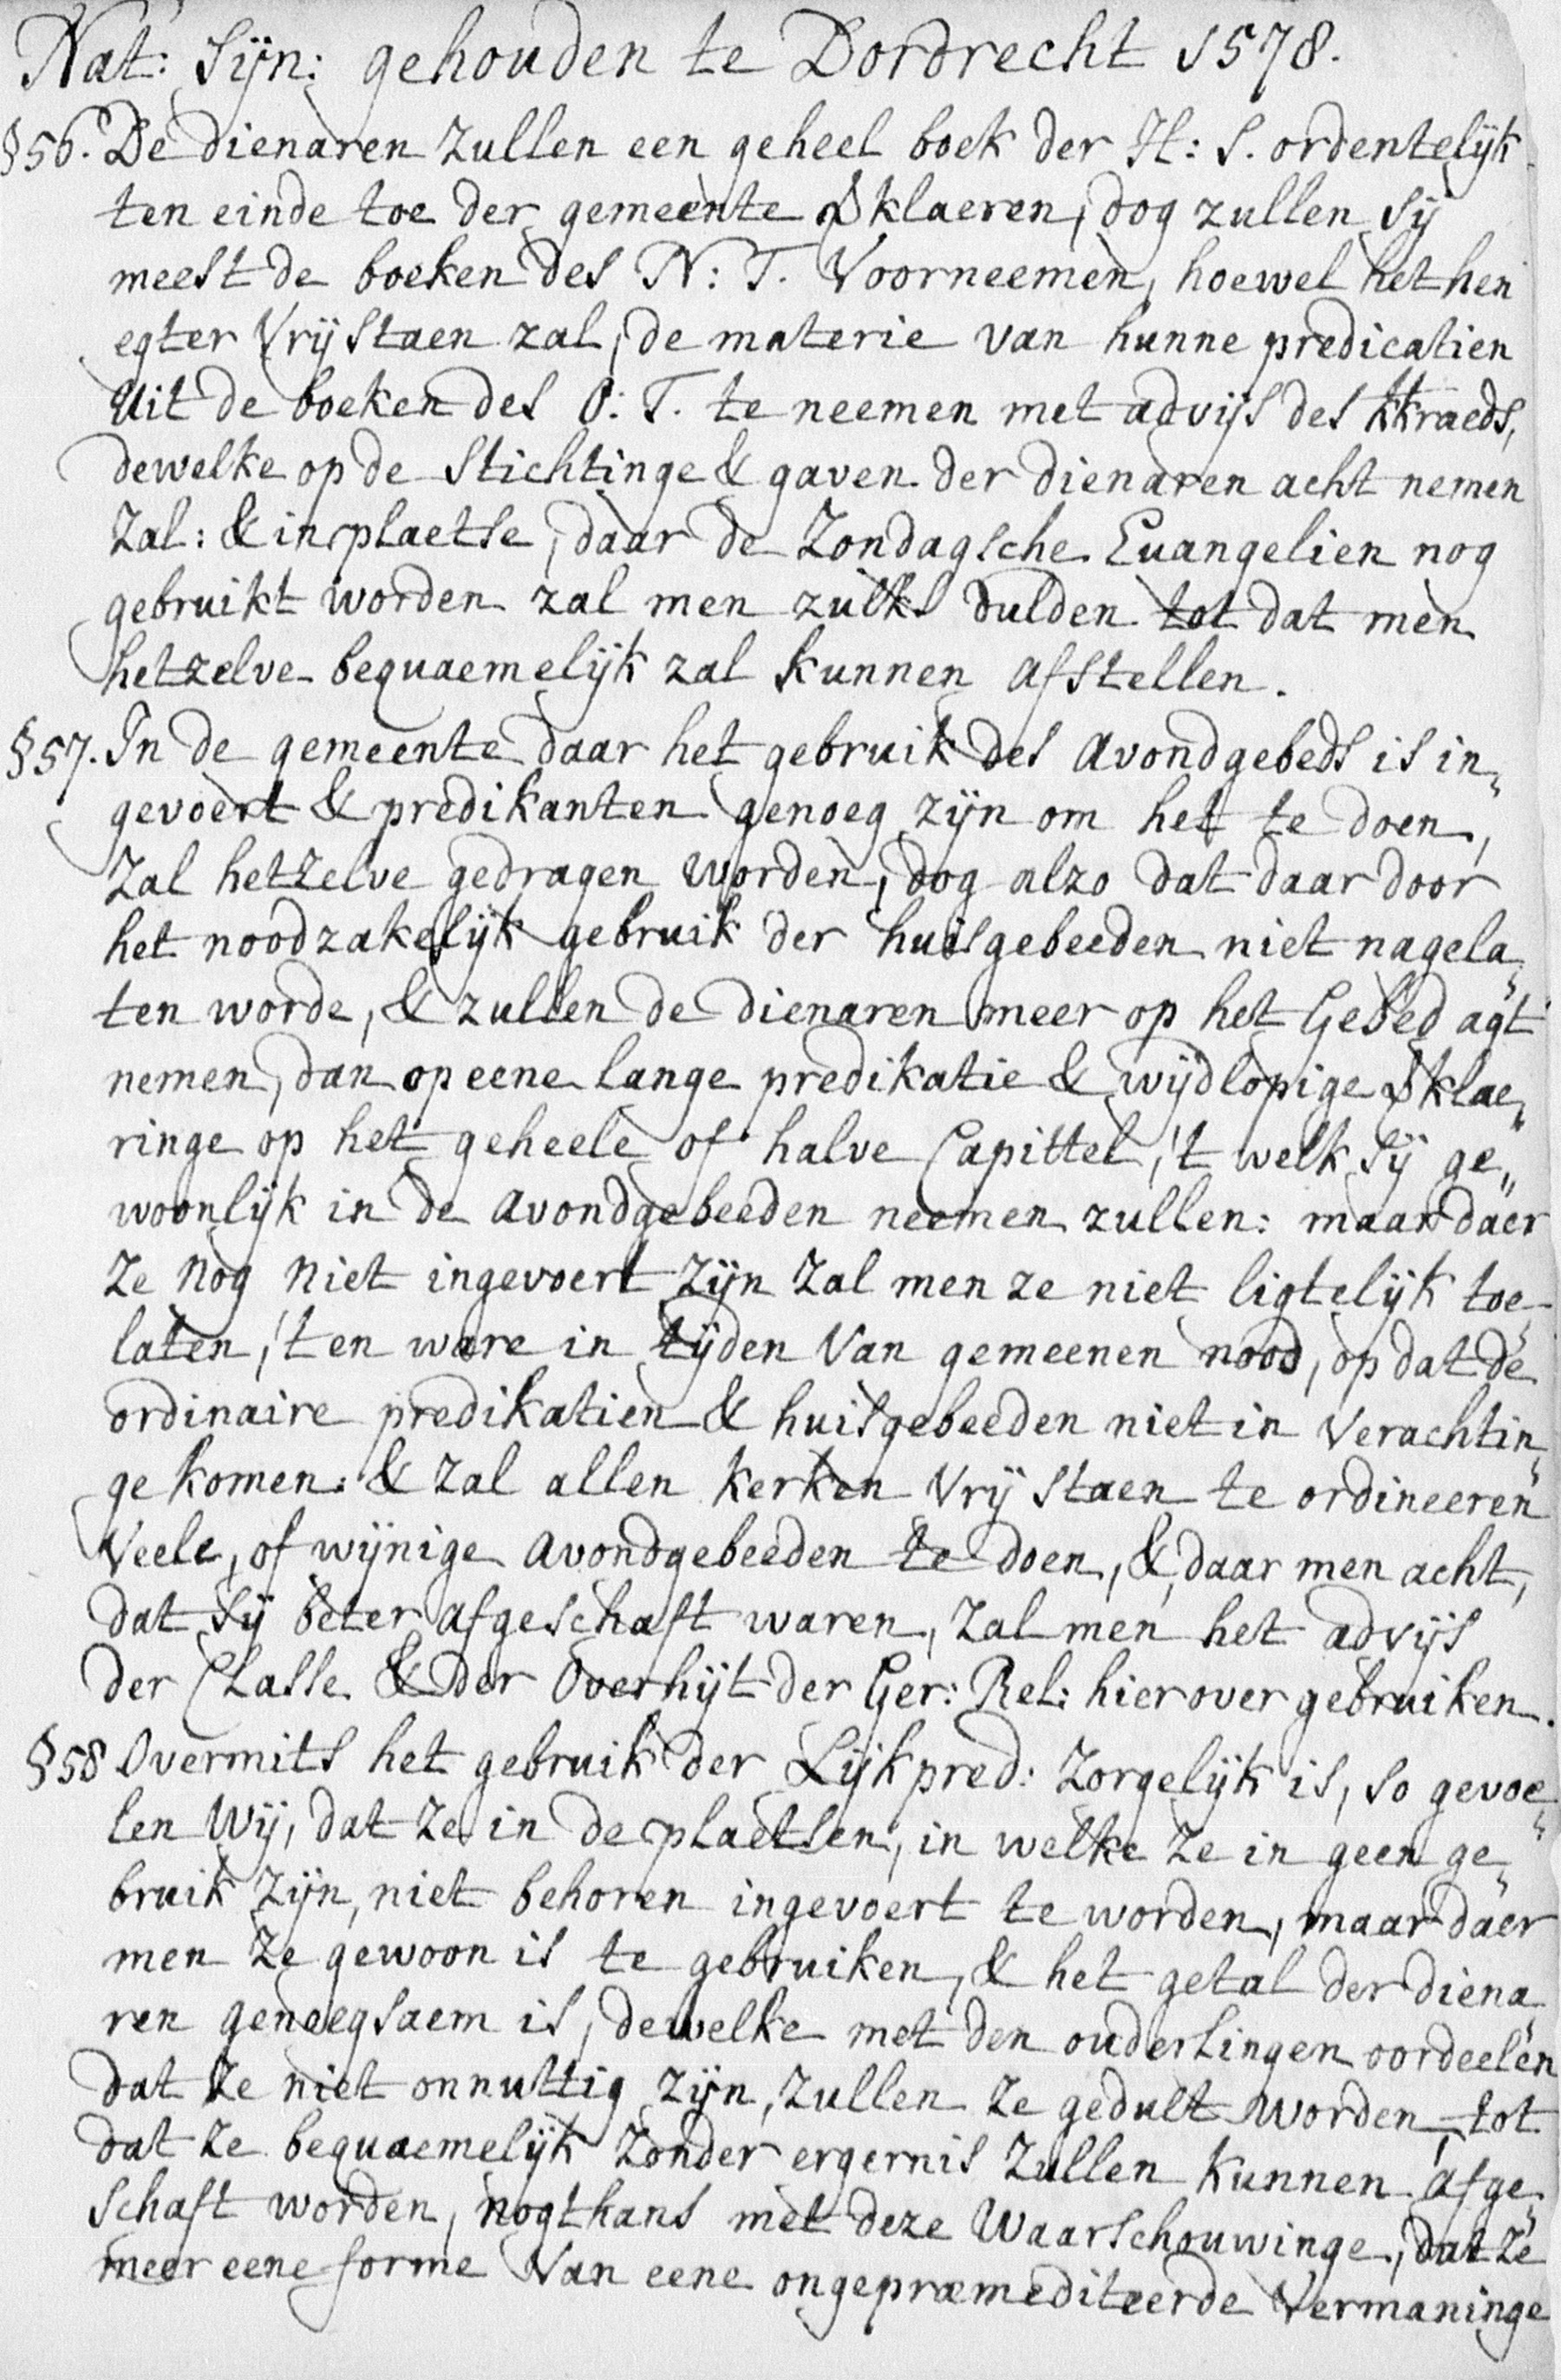 Nat: Sijn: gehouden te Dordrecht 1578.
§56. De dienaren Zullen een geheel boek der H: S. ordentelijk
ten einde toe der gemeente Vklaeren, dog zullen Sij
meest de boeken des N: T. Voorneemen, hoewel het hen
egter Vrij Staen zal, de materie van hunne predicatien
Uit de boeken des O: T. te neemen met advijs des kkraeds,
dewelke op de Stichtinge & gaven der dienaren acht nemen
Zal: & in plaetse, daar de Zondagsche Euangelien nog
gebruikt worden zal men zulks dulden tot dat men
hetzelve bequaemelijk zal kunnen afstellen.
§57. In de gemeente daar het gebruik des avondgebeds is in„
gevoert & predikanten genoeg zijn om het te doen,
Zal hetzelve gedragen worden, dog alzo dat daar door
het noodzakelijk gebruik der huisgebeeden niet nagela„
ten worde, & zullen de dienaren meer op het Gebed agt
nemen, dan op eene lange predikatie & wijdlopige Vklae„
ringe op het geheele of halve Capittel, 't welk Sij ge„
woonlijk in de avondgebeeden neemen zullen: maar daer
Ze nog niet ingevoert zijn Zal men ze niet ligtelijk toe-
laten, 't en ware in tijden Van gemeenen nood, op dat de
ordinaire predikatien & huisgebeeden niet in Verachtin„
ge komen: & zal allen kerken Vrij Staen te ordineeren
Veele, of wijnige avondgebeeden te doen, & daar men acht,
dat Sij beter afgeschaft waren, Zal men het advijs
der Classe & der Overhijt der Ger: Rel: hier over gebruiken.
§58 Overmits het gebruik der Lijkpred: Zorgelijk is, so gevoe„
len Wij, dat Ze in de plaetsen, in welke Ze in geen ge„
bruik Zijn, niet behoren ingevoert te worden, maar daer
men Ze gewoon is te gebruiken, & het getal der diena„
ren genoegsaem is, dewelke met den ouderlingen oordeelen
dat Ze niet onnuttig zijn, Zullen Ze gedult worden, tot
dat Ze bequaemelijk Zonder ergernis Zullen kunnen afge„
schaft worden, nogthans met deze Waarschouwinge, dat Ze
meer eene forme Van eene ongepræmediteerde Vermaninge